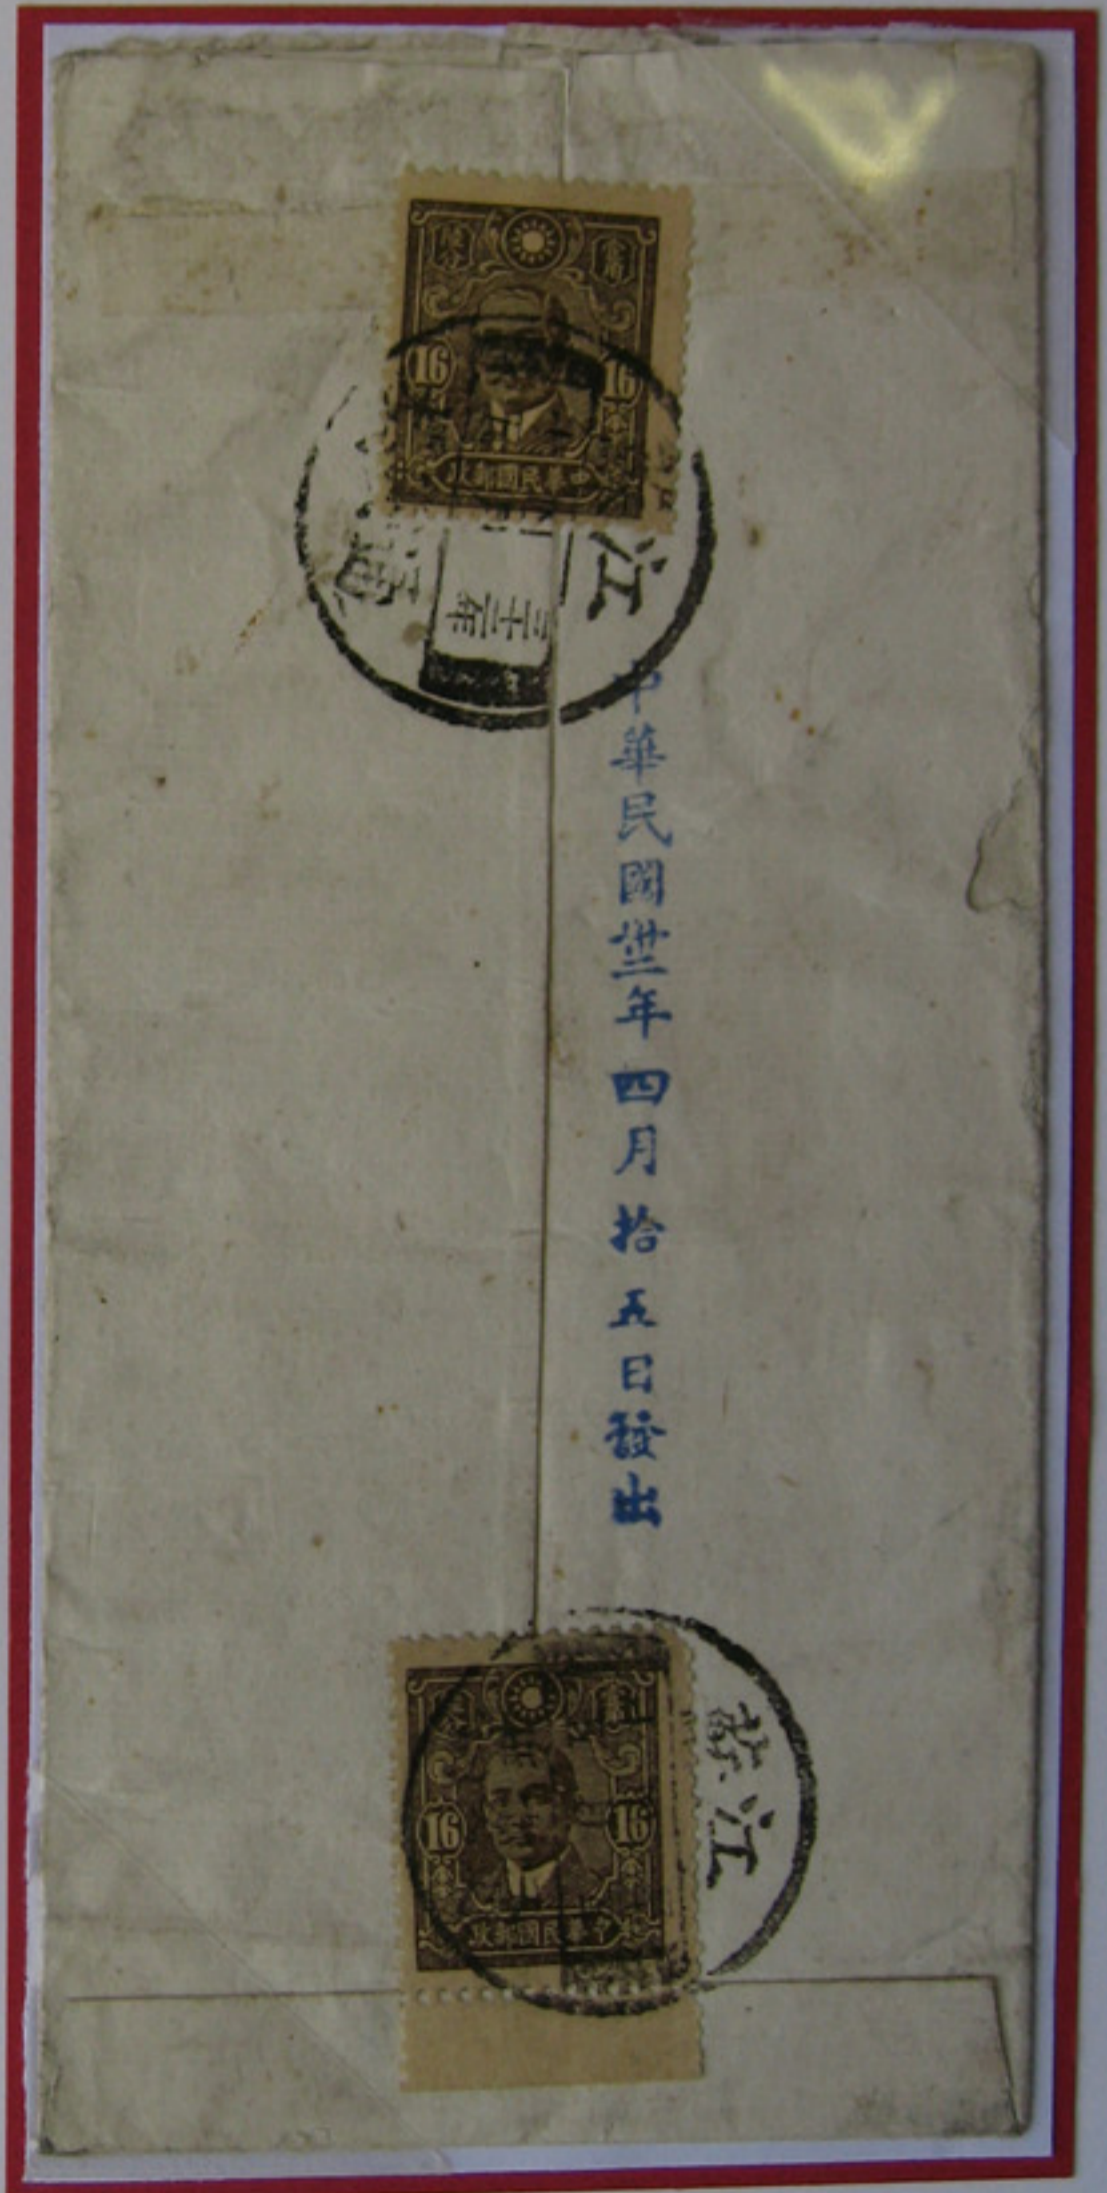 16 16
中華民國郵政
江
三十二年
中華民國卅二年四月拾五日發出
16 16
中華民國郵政
綦江